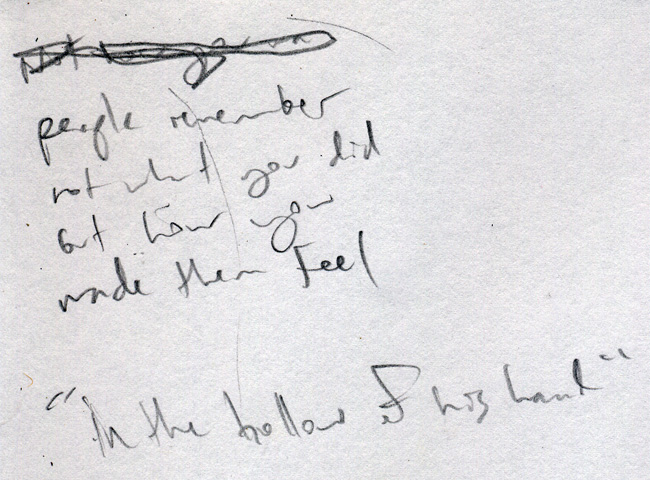 people remember
not what you did
but how you
made them feel
"In the hollow of his hand"